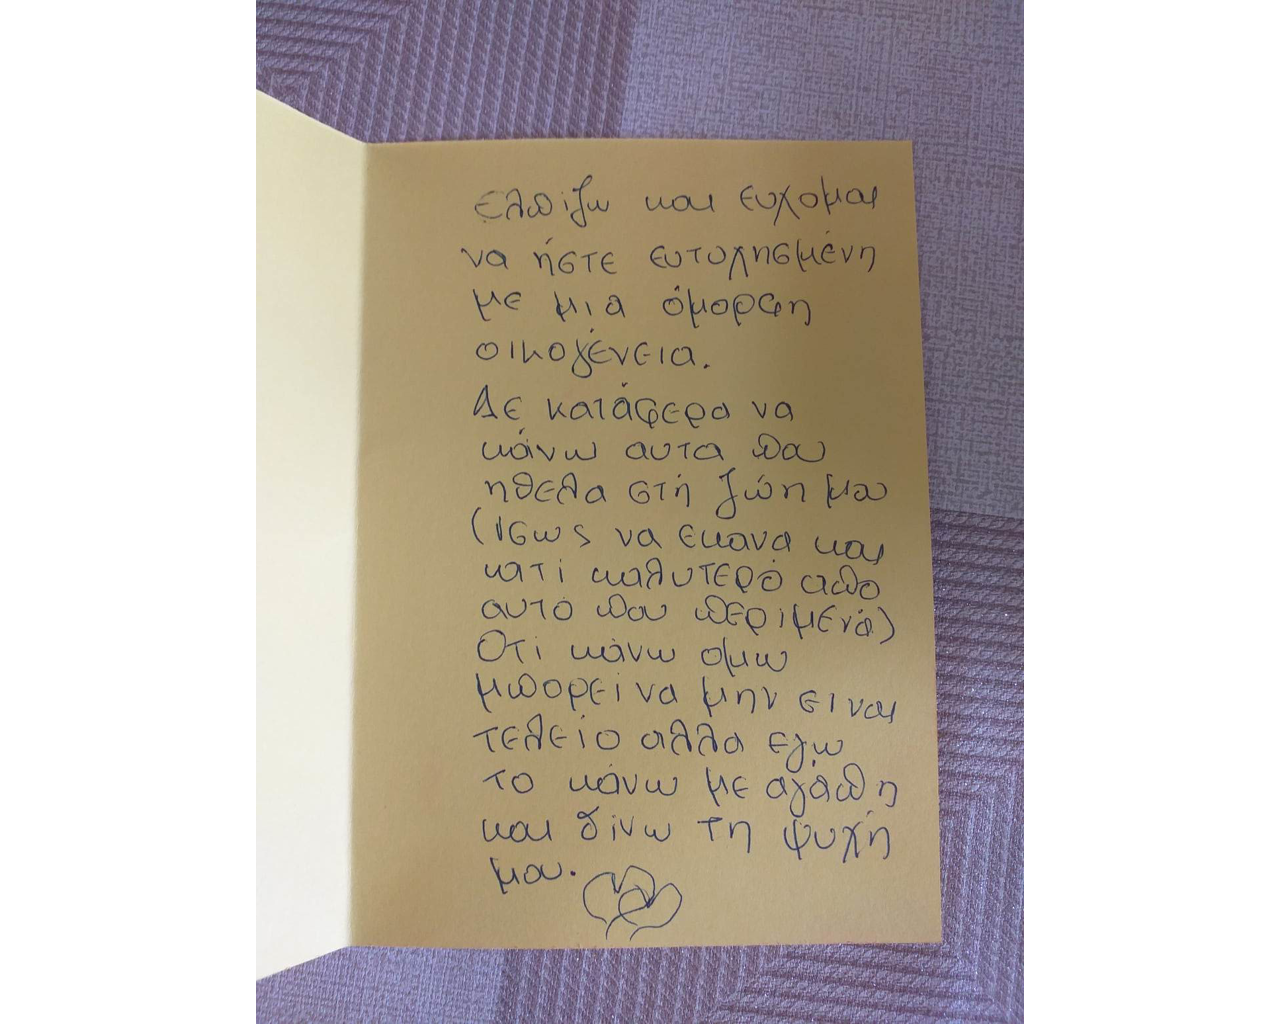 Ελπιζω και ευχομαι
να ήστε ευτυχησμένη
με μια όμορφη
οικογένεια.
Δε κατάφερα να
κάνω αυτα που
ηθελα στή ζώη μου
(ισως να εκανα και
κατι καλυτερό απο
αυτό που περιμενα)
Οτι κάνω ομω
μπορεί να μην ειναι
τελείο αλλα εγω
το κάνω με αγάπη
και δίνω τη ψυχή
μου.